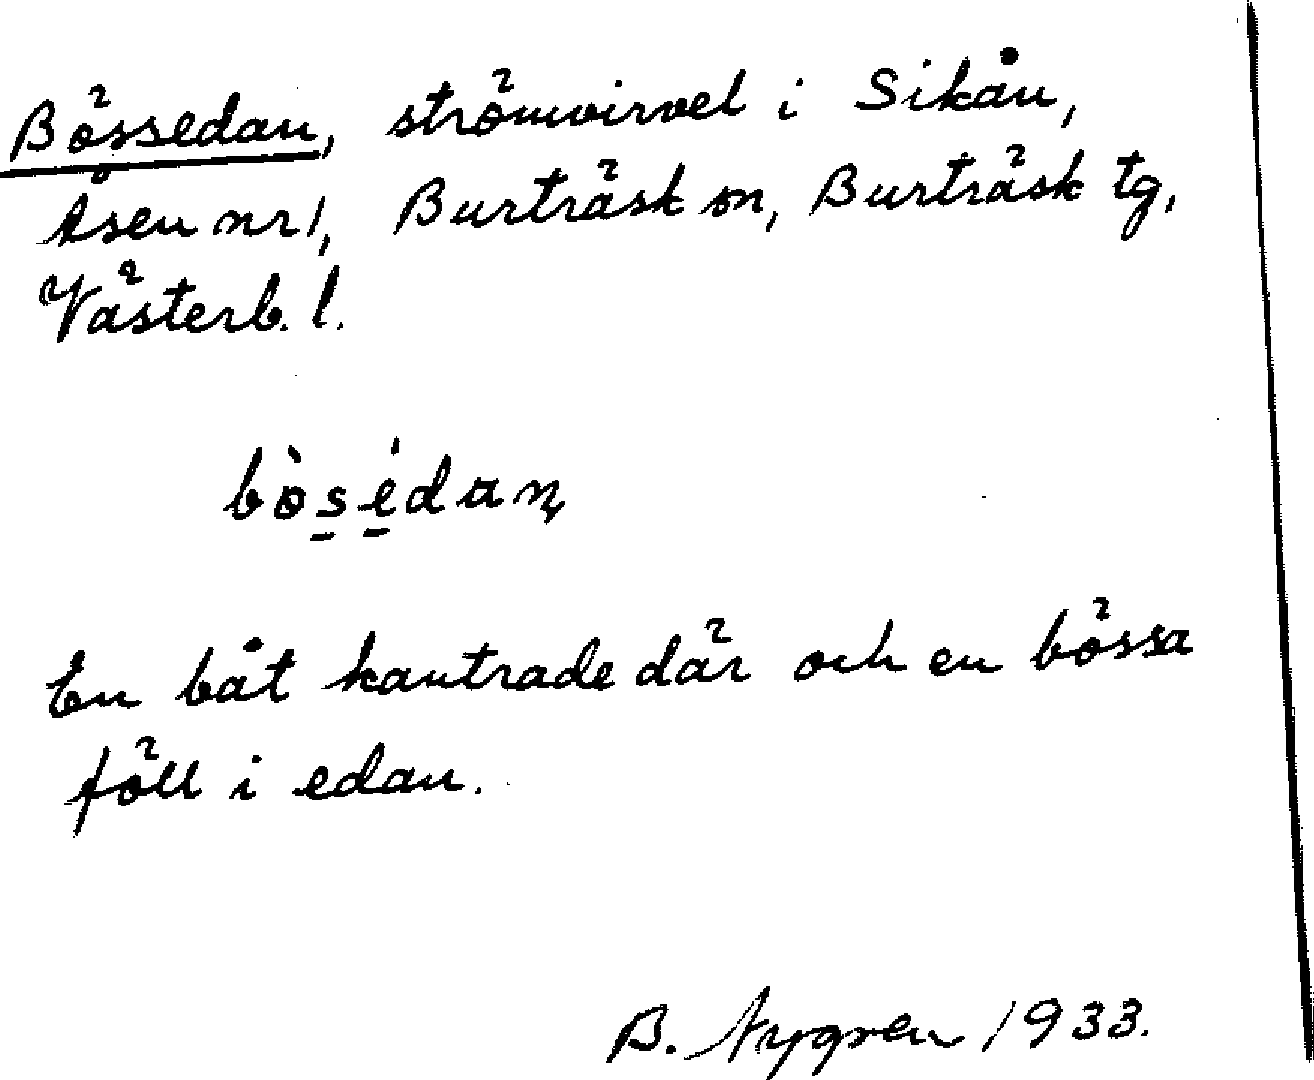 Bössedan, strömvirvel i Sikån,
Åsen nr 1, Burträsk sn, Burträsk tg,
Västerb. l.
bòsédan
En båt kantrade där och en bössa
föll i edan.
B. Nygren 1933.